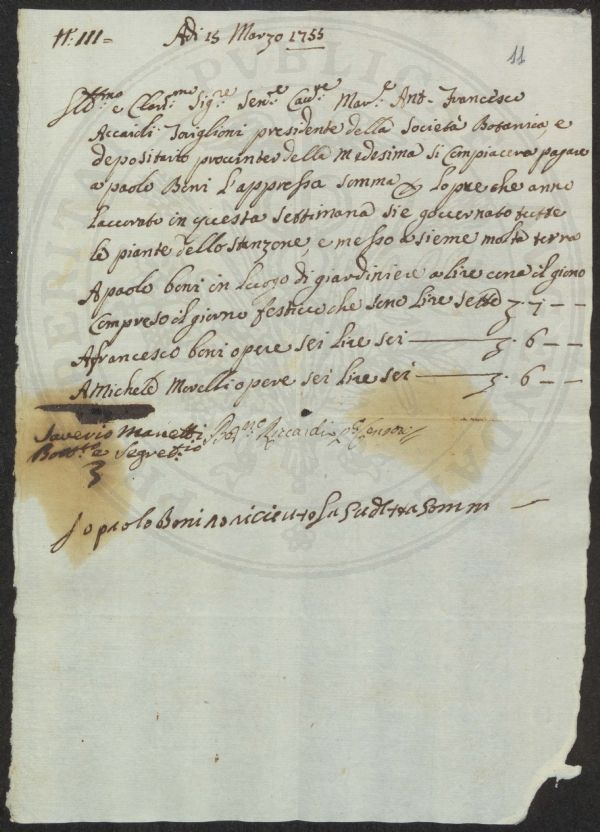 N: III =
Adi 15 Marzo 1755
11
Ill:mo e Clar:mo Sig:re Sen:e Cav:re Mar:e Ant. Francesco
Accaioli Toriglioni presidente della Società Botanica e
depositario procinter della Medesima si Compiacerà pagare
a paolo Boni L'appressa somma & Lo pre che anno
Lavorato in questa settimana si è governato tutte
le piante dello stanzone, e messo a sieme molta terra
A paolo boni in Luogo di giardiniere a lire una il giorno
Compreso il giorno festivo che sono Lire sette ʒ. 7 — —
A francesco boni opere sei Lire sei — ʒ. 6 — —
A Michele Morelli opere sei Lire sei — ʒ. 6 — —
Saverio Manetti
Bott:co e Segret:rio
Riccardi
Io paolo Boni o riceuto La Sudetta Somma —